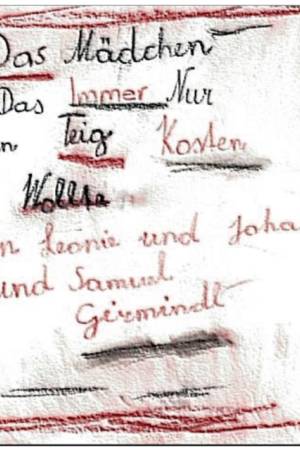 Das Mädchen
Das Immer Nur
n Teig Kosten
Wollte
n Leonie und Joha
und Samuel
Girmindl